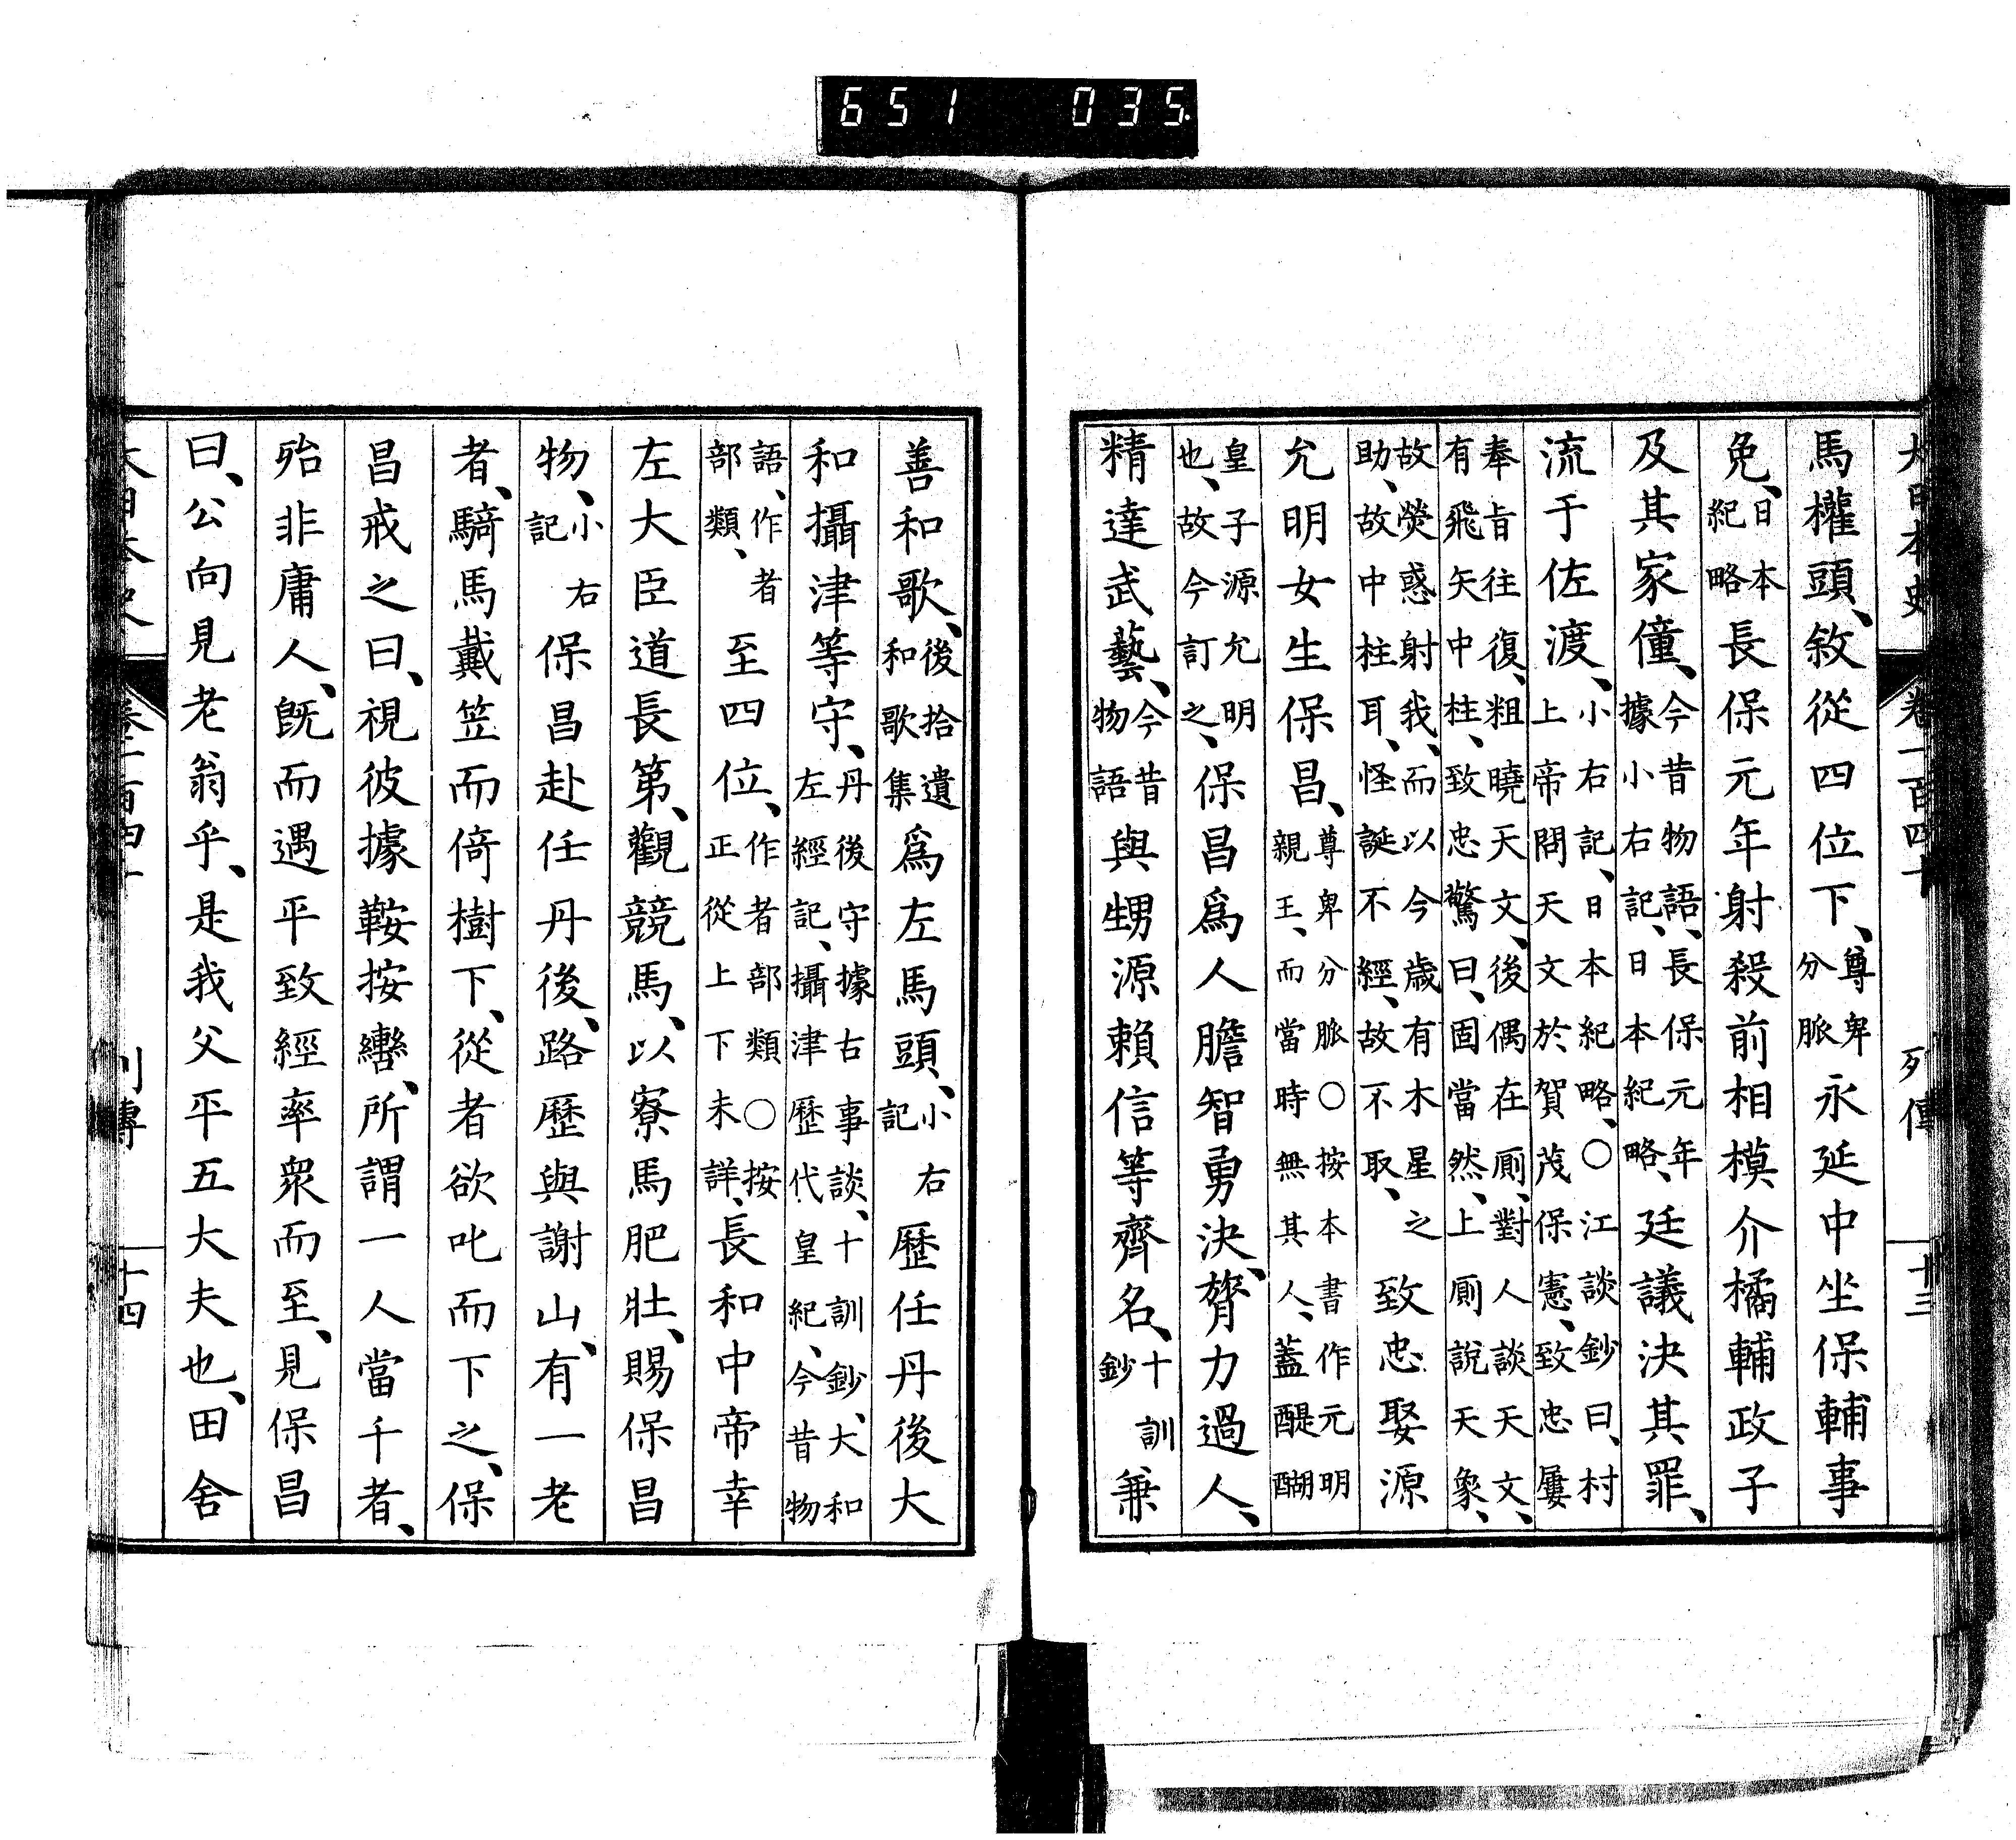 651 035.
大日本史 卷一百四十 列傳 十三
馬權頭、敘從四位下、尊卑分脈永延中坐保輔事
免、日本紀略長保元年射殺前相模介橘輔政子
及其家僮、今昔物語、長保元年據小右記、日本紀略、廷議決其罪、
流于佐渡、小右記、日本紀略、〇江談鈔曰、村上帝問天文於賀茂保憲、致忠屢
奉旨往復、粗曉天文、後偶在厠、對人談天文、有飛矢中柱、致忠驚曰、固當然、上厠說天象、
故熒惑射我、而以今歲有木星之助、故中柱耳、怪誕不經、故不取、致忠娶源
允明女生保昌、尊卑分脈〇按本書作元明親王、而當時無其人、蓋醍醐
皇子源允明也、故今訂之、保昌爲人膽智勇決、膂力過人、
精達武藝、今昔物語與甥源賴信等齊名、十訓鈔兼
善和歌、後拾遺和歌集爲左馬頭、小右記歷任丹後大
和攝津等守、丹後守據古事談、十訓鈔、大和左經記、攝津歷代皇紀、今昔物
語、作者部類、至四位、作者部類〇按正從上下未詳、長和中帝幸
左大臣道長第、觀競馬、以寮馬肥壯、賜保昌
物、小右記保昌赴任丹後、路歷與謝山、有一老
者、騎馬戴笠而倚樹下、從者欲叱而下之、保
昌戒之曰、視彼據鞍按轡、所謂一人當千者、
殆非庸人、既而遇平致經率眾而至、見保昌
曰、公向見老翁乎、是我父平五大夫也、田舍
大日本史 卷一百四十 列傳 十四